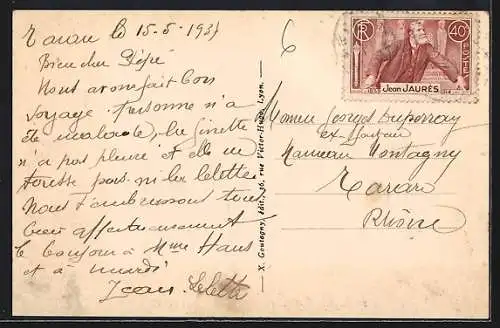 Tarare le 15-5-1937
Bien cher Pépé
Nous avons fait bon
voyage. Personne n'a
été malade, la Ginette
n'a pas pleuré et elle ne
pas ni les
Nous t'embrassons tous
bien affectueusement
le bonjour à Mme Haus
et à mardi
Jean
6
X. Goutagny, édit., 36, rue Victor-Hugo, Lyon.
RF
40c
POSTE
Jean JAURÈS
Monsieur Georges Duperray
Hameau Montagny
Tarare
Rhône